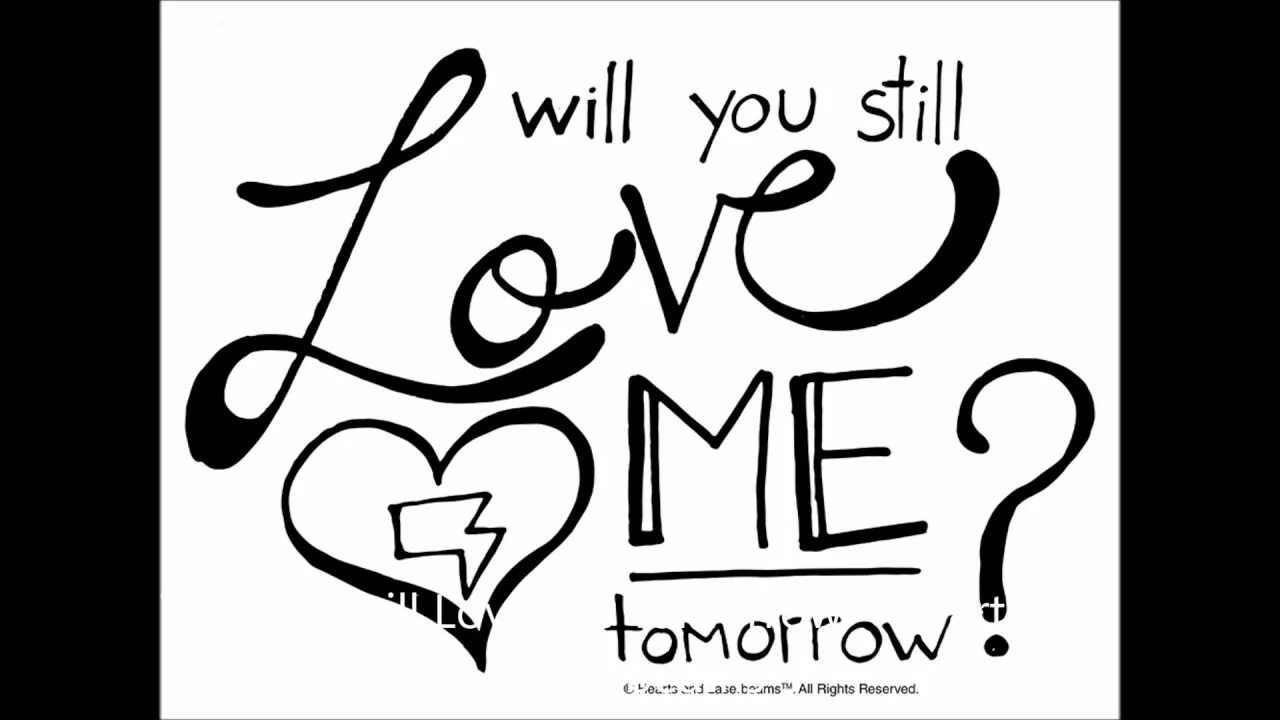 will you still
Love
ME?
tomorrow
© Hearts and Laserbeams™. All Rights Reserved.